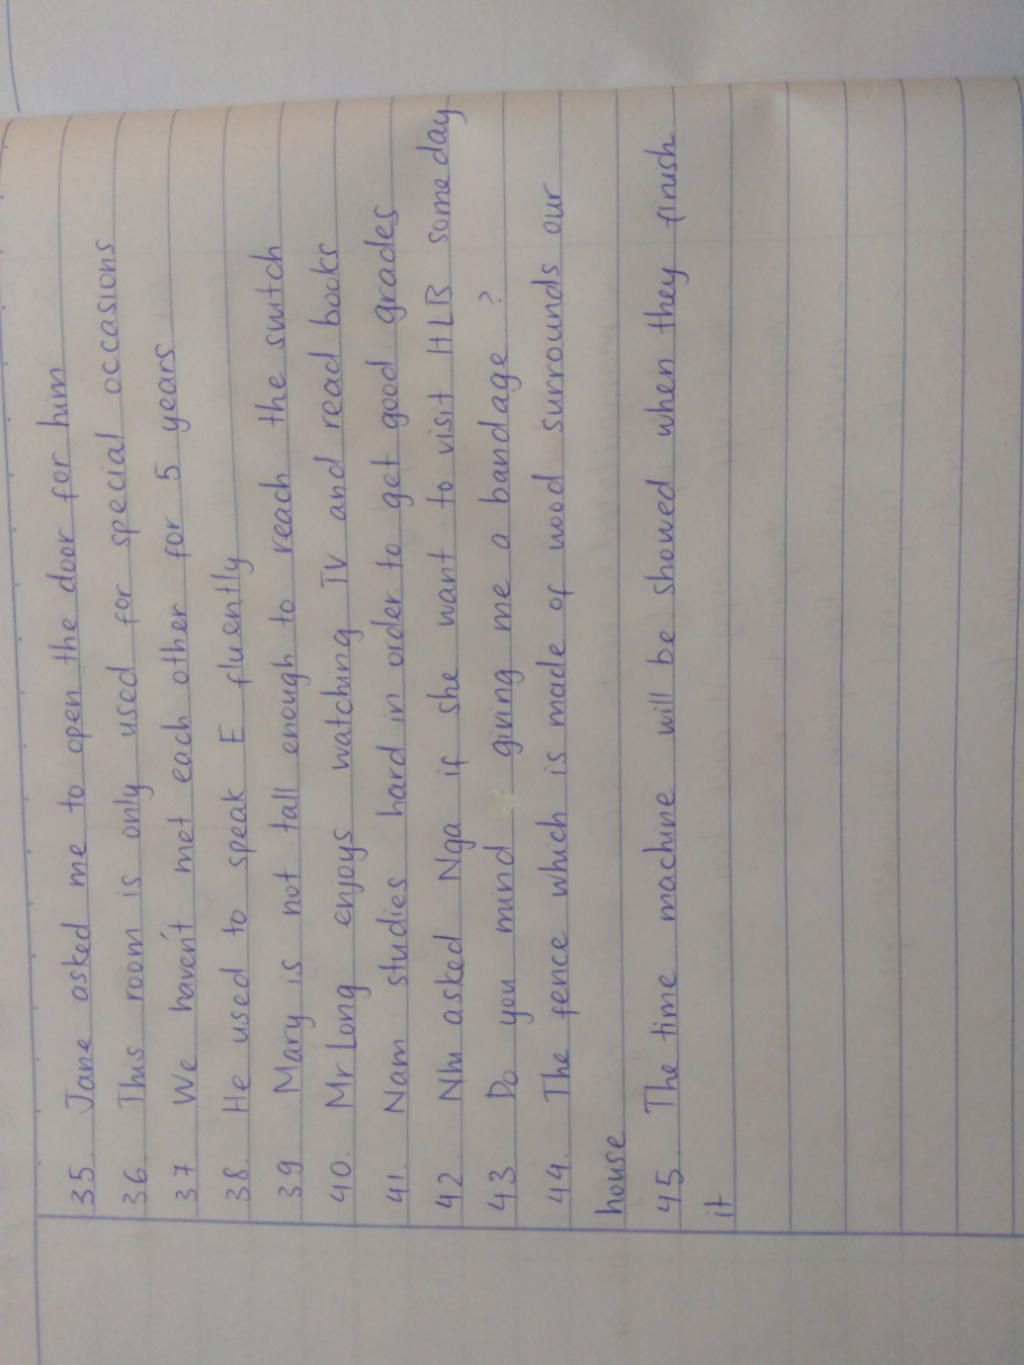 35. Jane asked me to open the door for him
36. This room is only used for special occasions
37 We haven't met each other for 5 years
38. He used to speak E fluently
39 Mary is not tall enough to reach the switch
40. Mr Long enjoys watching TV and read books
41. Nam studies hard in order to get good grades
42. Nhi asked Nga if she want to visit HLB some day
43 Do you mind giving me a bandage ?
44. The fence which is made of wood surrounds our
house
45. The time machine will be showed when they finish
it